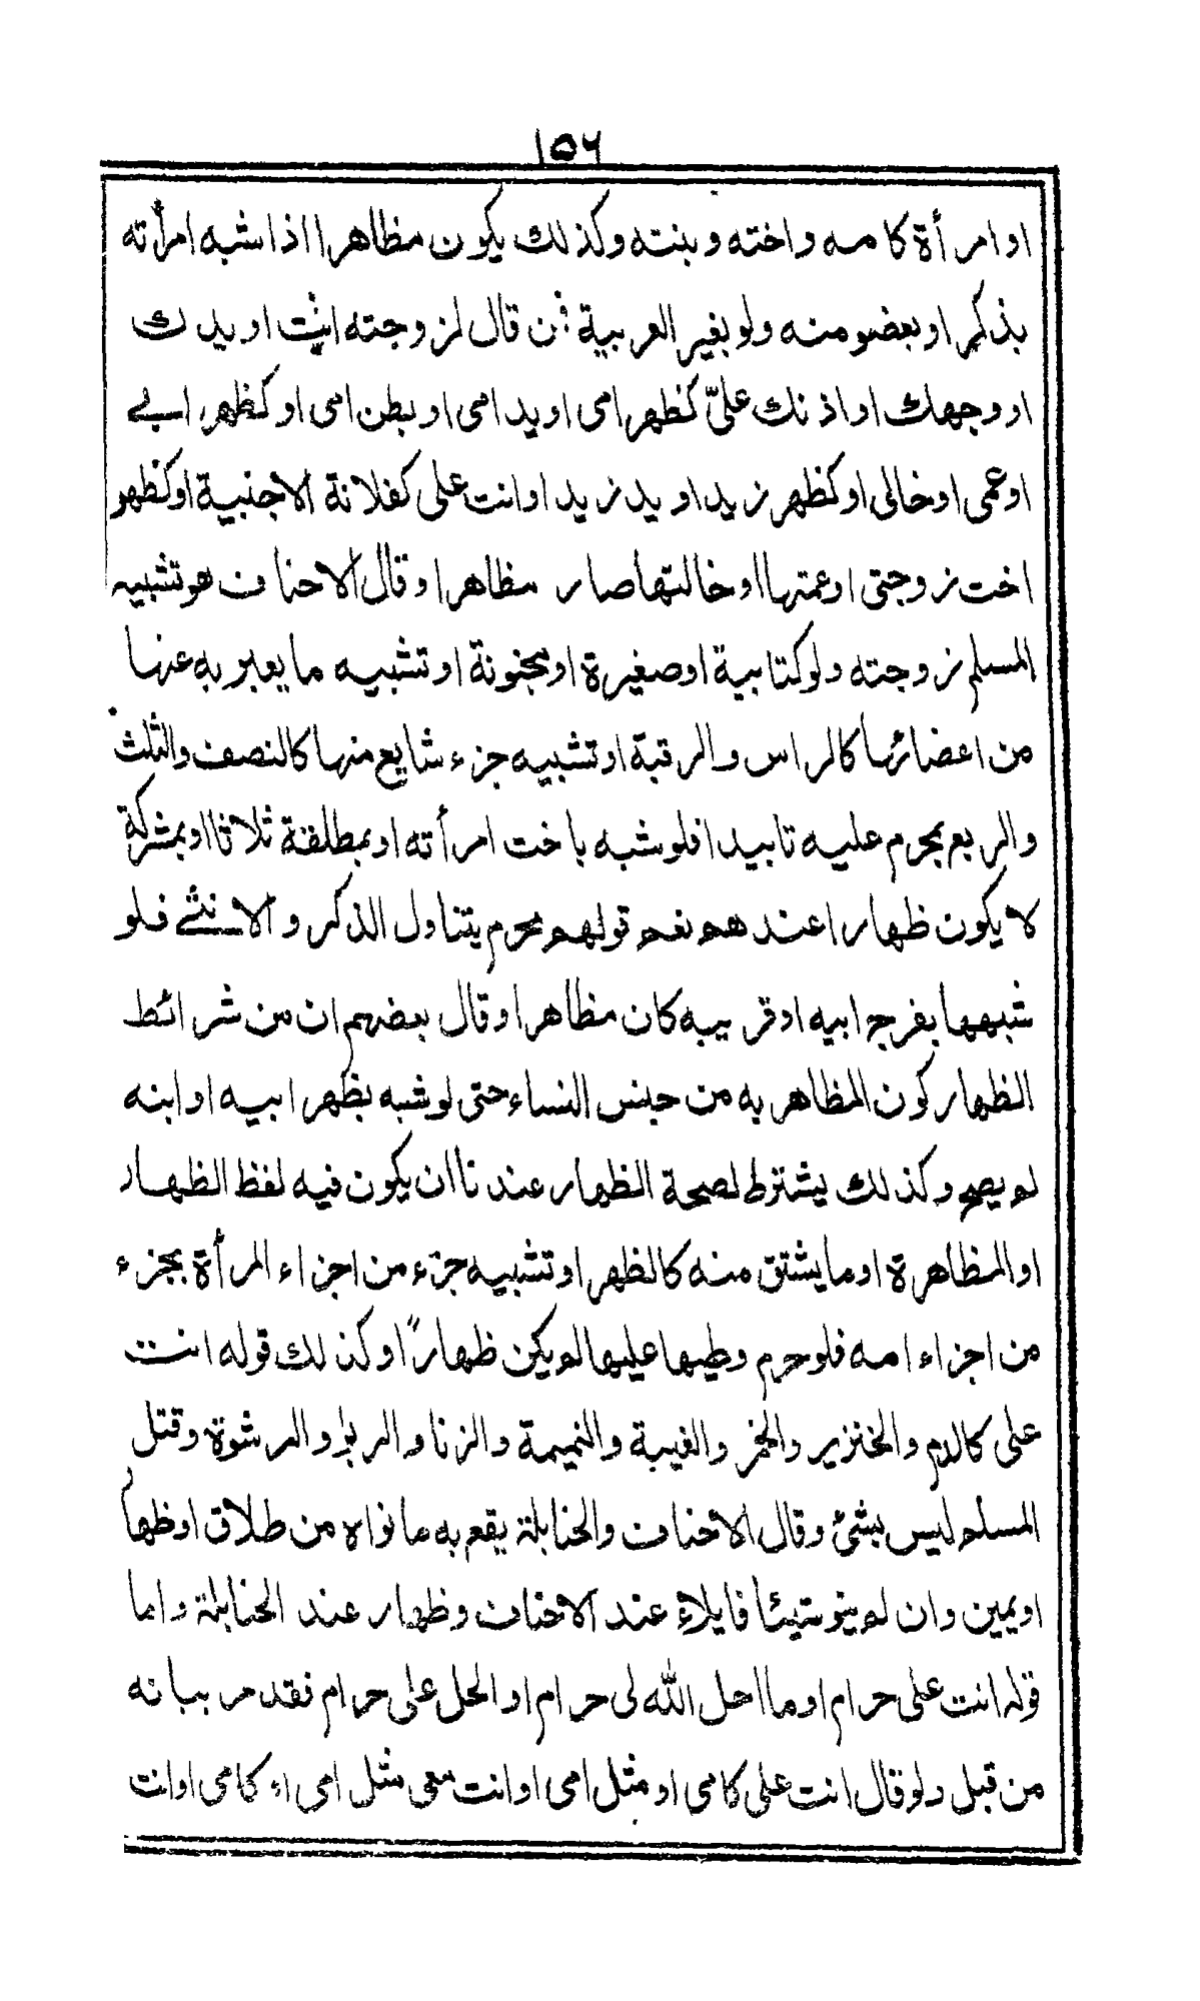 ١٥٦
او امرأة كامه واخته وبنته وكذلك يكون مظاهرا اذا شبه امرأته
بذكر او بعضو منه ولو بغير العربية فمن قال لزوجته انت او يدك
او وجهك او اذنك علىّ كظهر امى او يد امى او بطن امى او كظهر ابى
او عمى او خالى او كظهر زيد او يد زيد او انت على كفلانة الاجنبية او كظهر
اخت زوجتى او عمتها او خالتها صار مظاهرا وقال الاحناف هو تشبيه
المسلم زوجته ولو كتابية او صغيرة او مجنونة او تشبيه ما يعبر به عنها
من اعضائها كالراس والرقبة او تشبيه جزء شايع منها كالنصف والثلث
والربع بمحرم عليه تابيدا فلو شبه باخت امرأته او بمطلقة ثلاثا او بمشركة
لا يكون ظهارا عندهم نعم قولهم محرم يتناول الذكر والانثى فلو
شبهها بفرج ابيه او قريبه كان مظاهرا وقال بعضهم ان من شرائط
الظهار كون المظاهر به من جنس النساء حتى لو شبه بظهر ابيه او ابنه
لم يصح وكذلك يشترط لصحة الظهار عندنا ان يكون فيه لفظ الظهار
او المظاهرة او ما يشتق منه كالظهر او تشبيه جزء من اجزاء المرأة بجزء
من اجزاء امه فلو حرم وطيها عليها لم يكن ظهاراً وكذلك قوله انت
على كالدم والخنزير والخمر والغيبة والنميمة والزنا والربوا والرشوة وقتل
المسلم ليس بشئ وقال الاحناف والحنابلة يقع به ما نواه من طلاق او ظهار
او يمين وان لم ينو شيئا فايلاء عند الاحناف وظهار عند الحنابلة واما
قوله انت على حرام او ما احل الله لى حرام او الحل على حرام فقد مر بيانه
من قبل ولو قال انت على كامى او مثل امى او انت معى مثل امى او كامى او انت